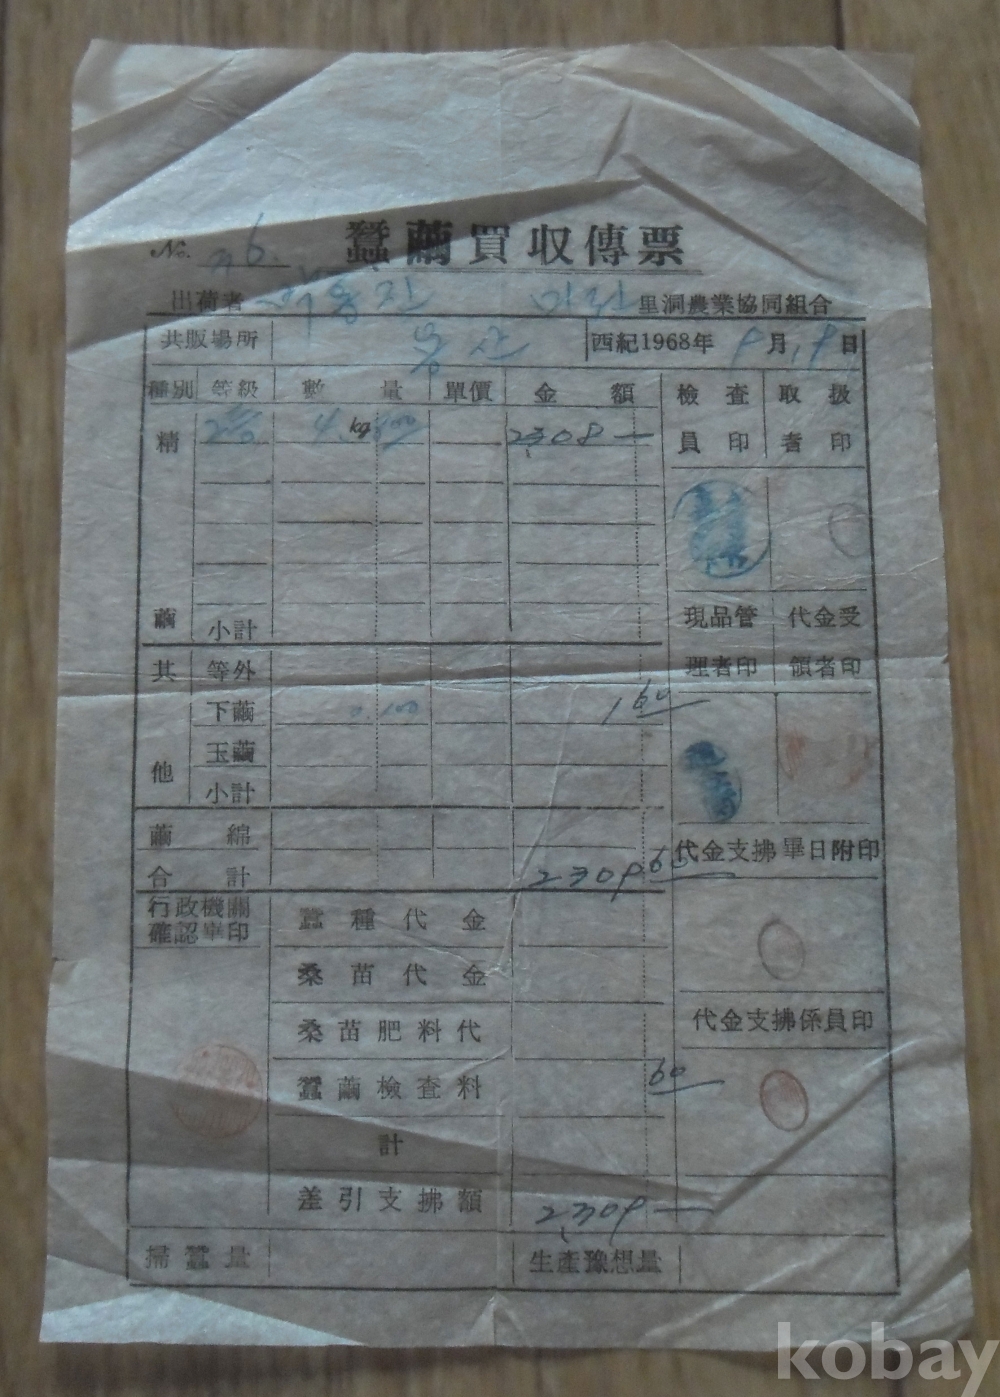 No. 76. 蠶繭買収傳票
出荷者 里洞農業協同組合
共販場所 용산 西紀1968年 9月19日
種別 等級 數量 單價 金額 檢査 取扱
精 2등 4.kg 2,308— 員印 者印
繭 小計 現品管 代金受
其 等外 理者印 領者印
下繭 0.100 1 60
玉繭
他
小計
代金支拂畢日附印
繭綿
合計 2309 60
行政機關 蠶種代金
確認畢印
桑苗代金
桑苗肥料代 代金支拂係員印
蠶繭檢査料 60
計
差引支拂額 2,309—
掃蠶量 生產豫想量
kobay